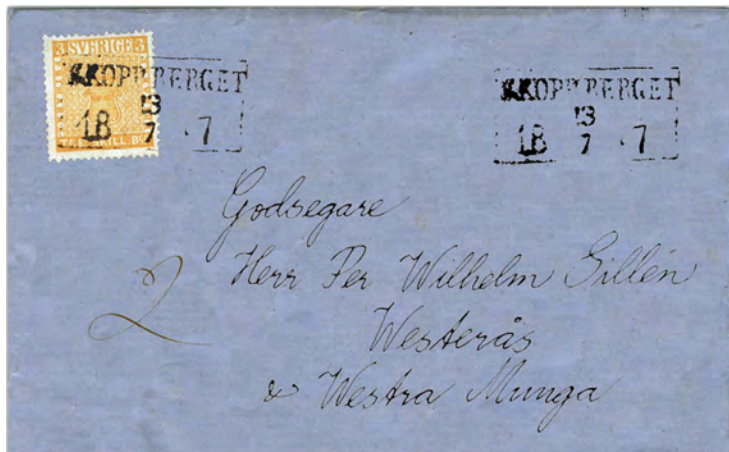 3 SVERIGE 3
KOPPARBERGET
13
18 7 7
KOPPARBERGET
13
18 7 7
Godsegare
2 Herr Per Wilhelm Gillén
Westerås
& Westra Munga